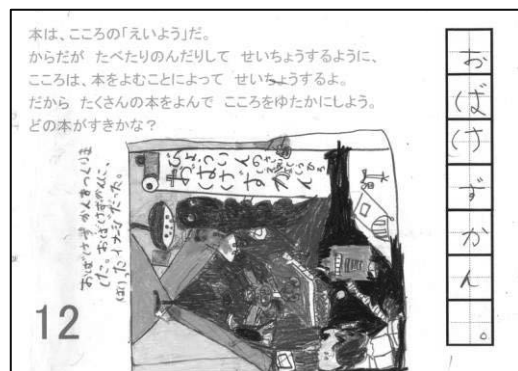 本は、こころの「えいよう」だ。
からだが たべたりのんだりして せいちょうするように、
こころは、本をよむことによって せいちょうするよ。
だから たくさんの本をよんで こころをゆたかにしよう。
どの本がすきかな？
おばけずかん。
おばけずかんをつくりま
した。おばけずかんに、
はいったイメージだった。
12